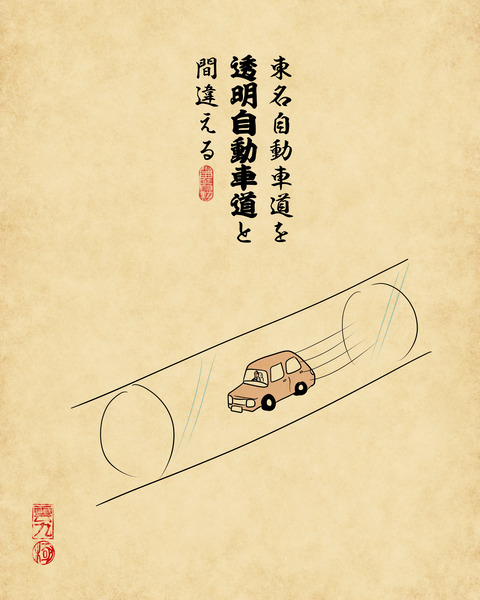 東名自動車道を
透明自動車道と
間違える